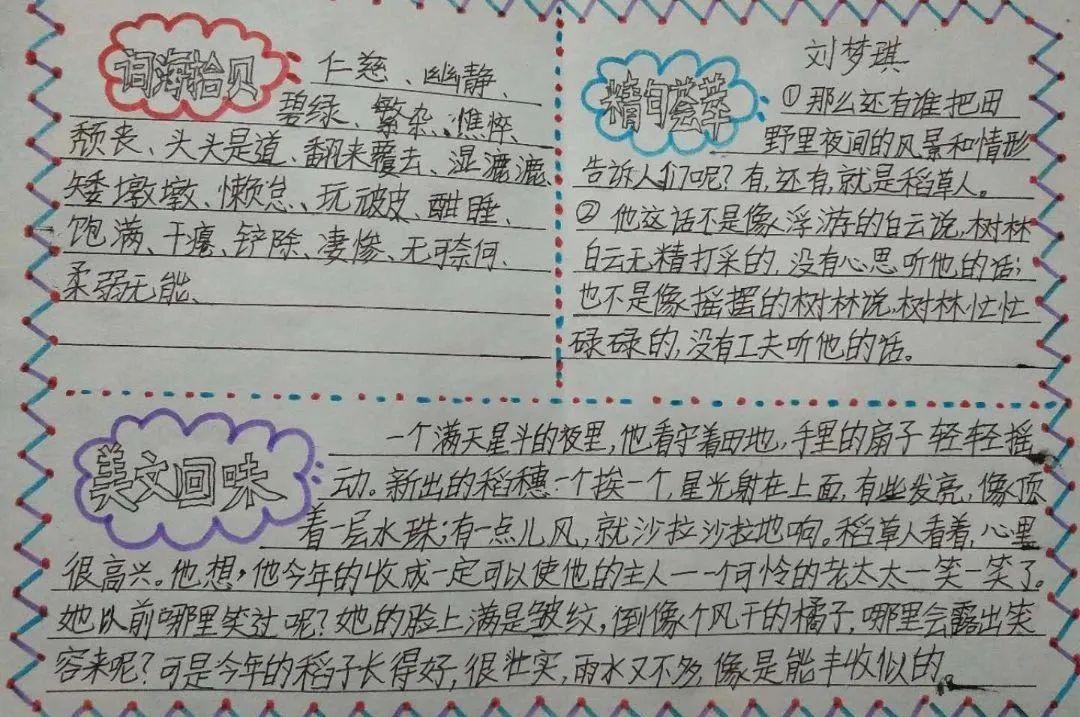 词海拾贝
仁慈、幽静、
碧绿、繁杂、憔悴、
颓丧、头头是道、翻来覆去、湿漉漉、
矮墩墩、懒怠、玩皮、酣睡、
饱满、干瘪、铲除、凄惨、无可奈何、
柔弱无能、
刘梦琪
精句荟萃
①那么还有谁把田
野里夜间的风景和情形
告诉人们呢?有,还有,就是稻草人。
②他这话不是像浮游的白云说,树林
白云无精打采的,没有心思听他的话;
也不是像摇摆的树林说,树林忙忙
碌碌的,没有工夫听他的话。
美文回味
一个满天星斗的夜里,他看守着田地,手里的扇子轻轻摇
动。新出的稻穗一个挨一个,星光射在上面,有些发亮,像顶
着一层水珠;有一点儿风,就沙拉沙拉地响。稻草人看着,心里
很高兴。他想,他今年的收成一定可以使他的主人一一个可怜的老太太一笑一笑了。
她以前哪里笑过呢?她的脸上满是皱纹,倒像个风干的橘子,哪里会露出笑
容来呢?可是今年的稻子长得好,很壮实,雨水又不多,像是能丰收似的